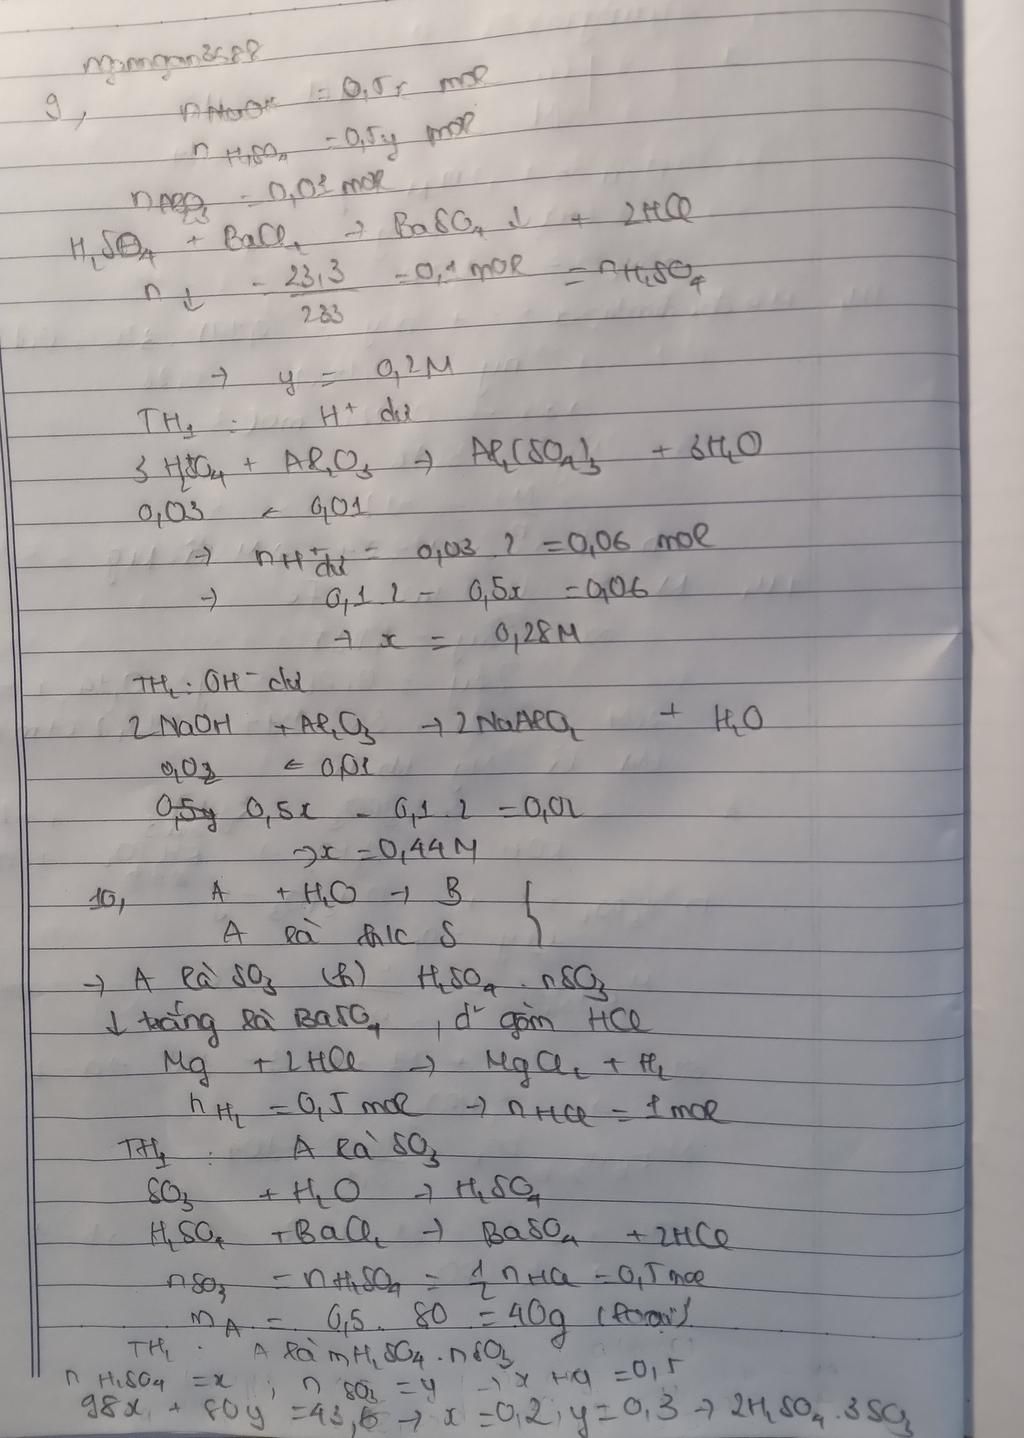 9,
nNaOH = 0,5x mol
n H₂SO₄ = 0,5y mol
nAl₂O₃ = 0,01 mol
H₂SO₄ + BaCl₂ → BaSO₄ ↓ + 2HCl
n↓ = 23,3/233 = 0,1 mol = nH₂SO₄
→ y = 0,2M
TH₁ : H⁺ dư
3H₂SO₄ + Al₂O₃ → Al₂(SO₄)₃ + 3H₂O
0,03 ← 0,01
→ nH⁺dư = 0,03.2 = 0,06 mol
→ 0,1.2 - 0,5x = 0,06
→ x = 0,28M
TH₂ : OH⁻ dư
2NaOH + Al₂O₃ → 2NaAlO₂ + H₂O
0,02 ← 0,01
0,5y 0,5x - 0,1.2 = 0,02
→ x = 0,44M
10, A + H₂O → B
A là h/c S
→ A là SO₃ (h) H₂SO₄.nSO₃
↓ trắng là BaSO₄, d² gồm HCl
Mg + 2HCl → MgCl₂ + H₂
nH₂ = 0,5 mol → nHCl = 1 mol
TH₁ : A là SO₃
SO₃ + H₂O → H₂SO₄
H₂SO₄ + BaCl₂ → BaSO₄ + 2HCl
nSO₃ = nH₂SO₄ = 1/2 nHCl = 0,5 mol
mA = 0,5 . 80 = 40g (loại)
TH₂ : A là mH₂SO₄.nSO₃
n H₂SO₄ = x ; n SO₃ = y → x + y = 0,5
98x + 80y = 43,6 → x = 0,2 ; y = 0,3 → 2H₂SO₄.3SO₃